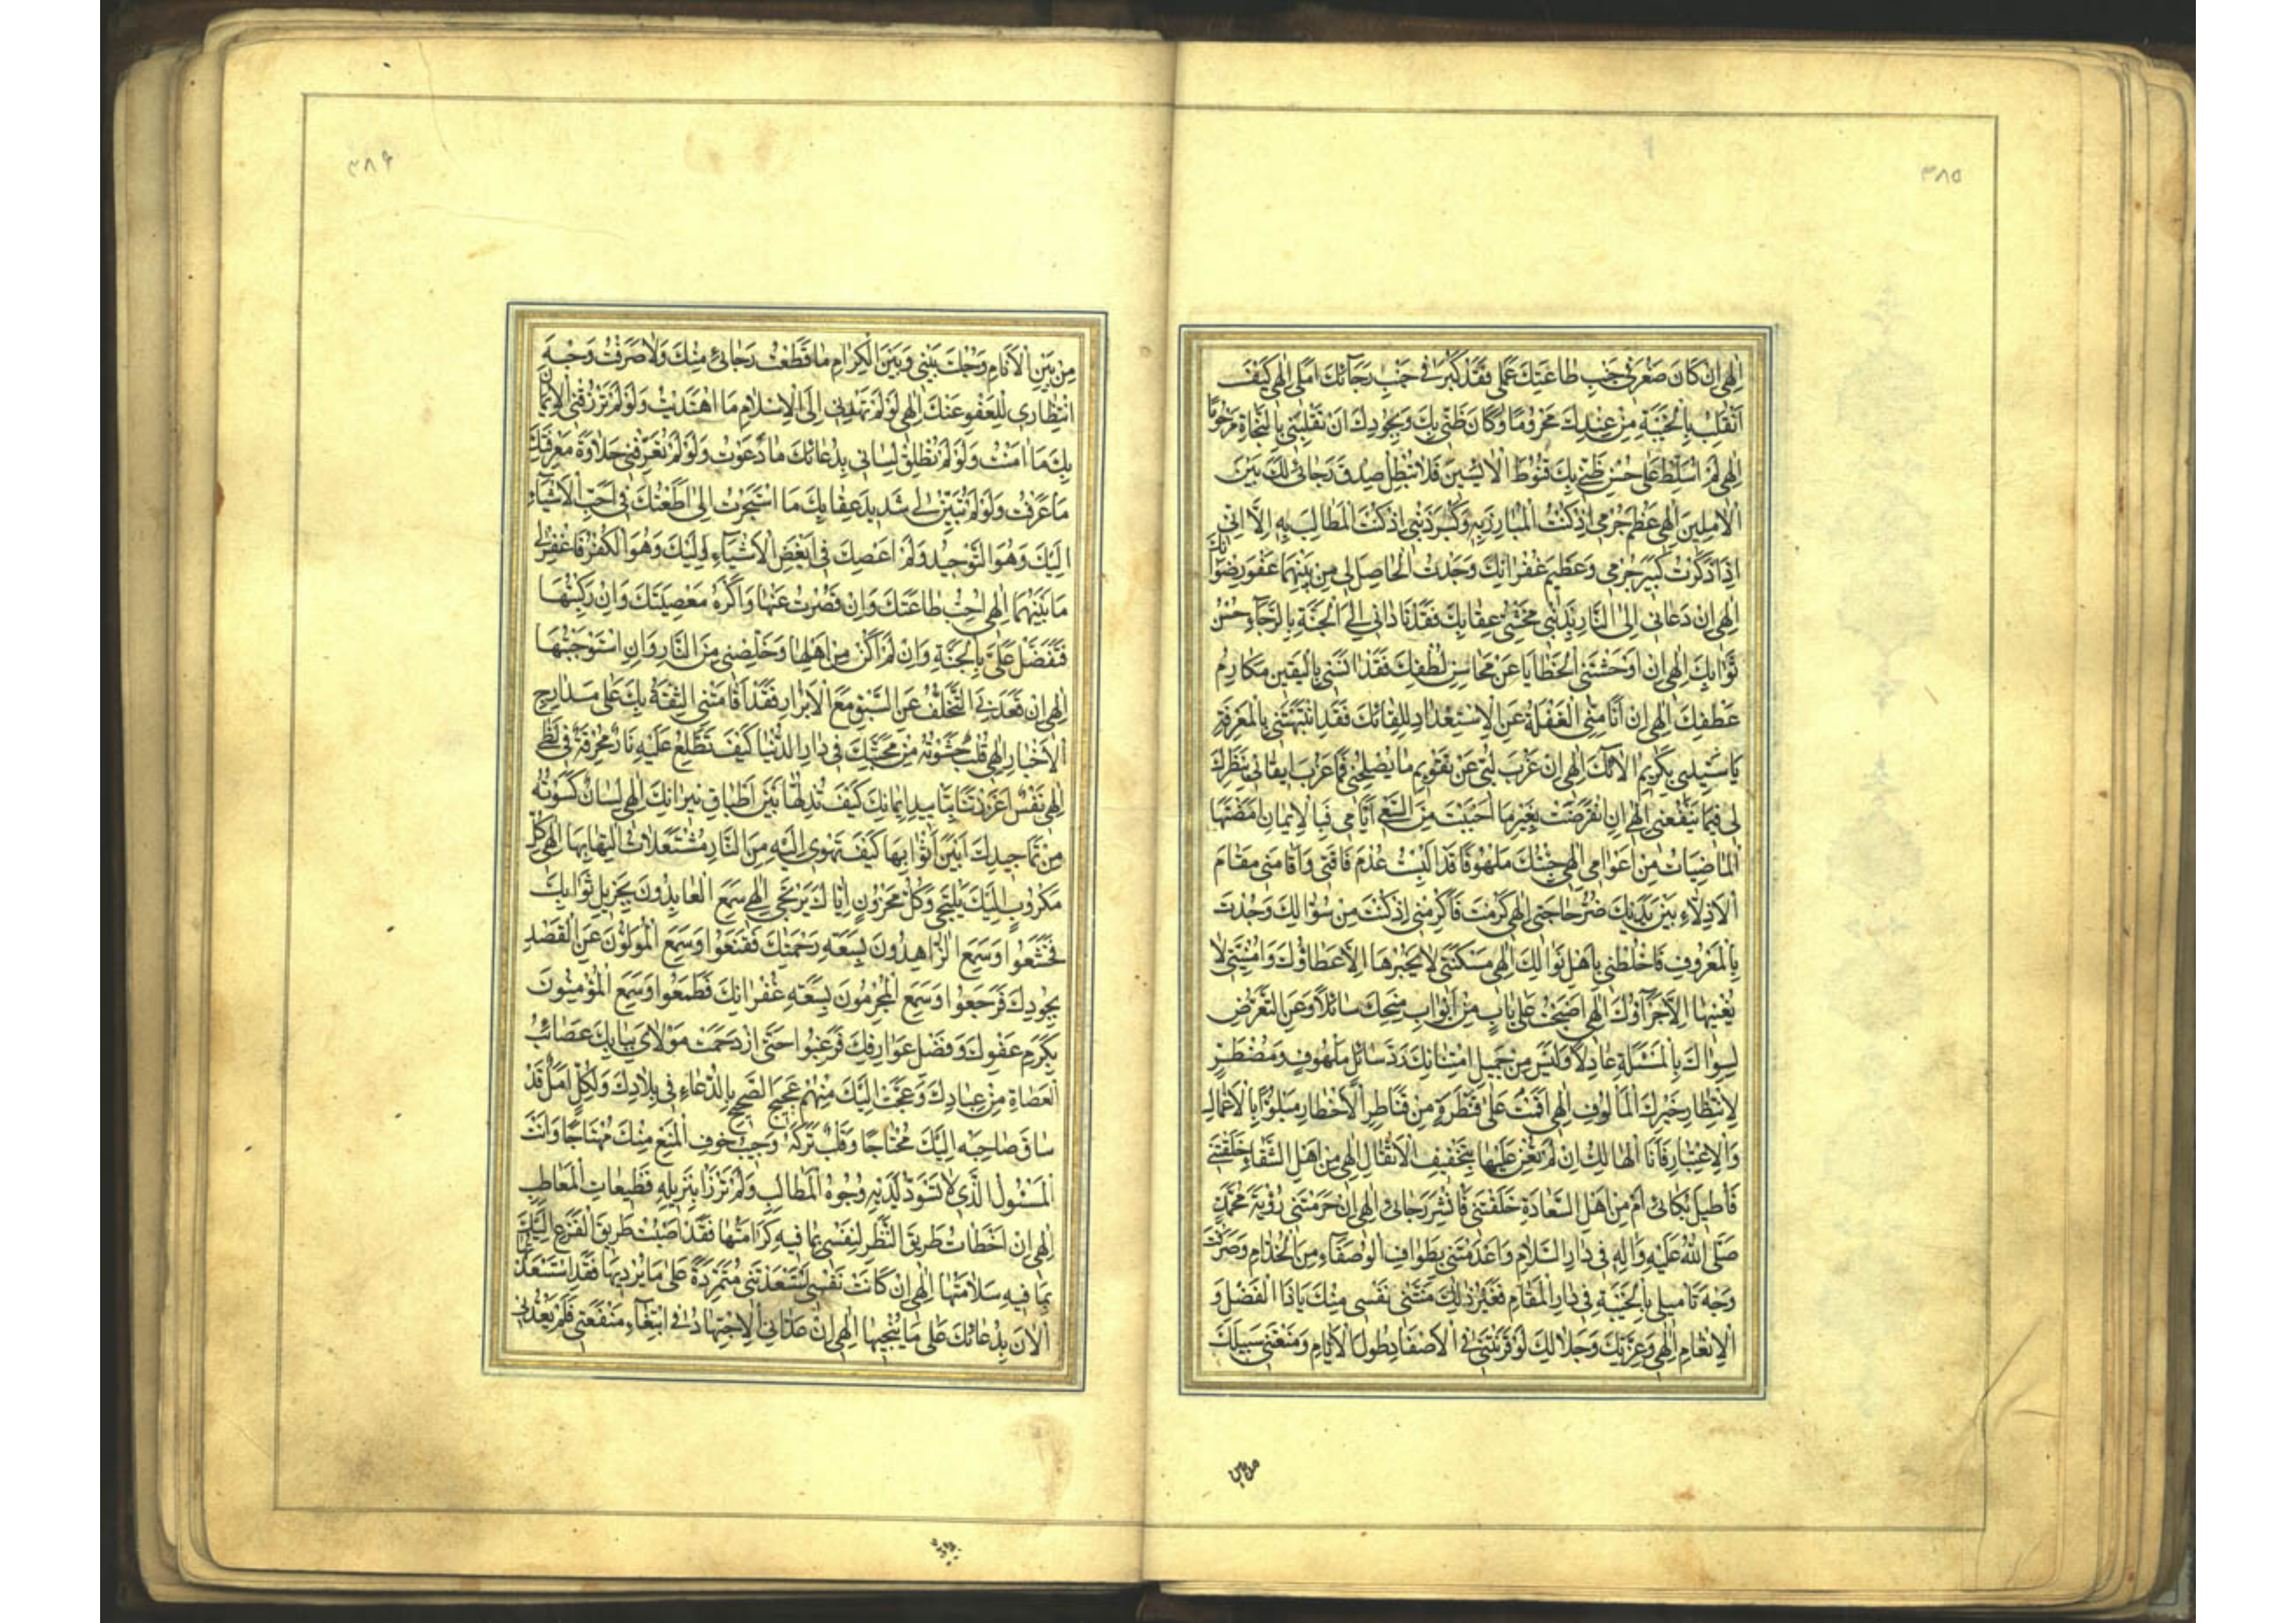 ٣٨٥
اِلٰهِی اِنْ كَانَ صَغُرَ فِی جَنْبِ طَاعَتِكَ عَمَلِی فَقَدْ كَبُرَ فِی جَنْبِ رَجَآئِكَ اَمَلِی اِلٰهِی كَیْفَ
اَنْقَلِبُ بِالْخَیْبَةِ مِنْ عِنْدِكَ مَحْرُومًا وَكَانَ ظَنِّی بِكَ وَبِجُودِكَ اَنْ تَقْلِبَنِی بِالنَّجَاةِ مَرْحُومًا
اِلٰهِی لَمْ اُسَلِّطْ عَلٰی حُسْنِ ظَنِّی بِكَ قُنُوطَ الْاٰیِسِینَ فَلَا تُبْطِلْ صِدْقَ رَجَائِی لَكَ بَیْنَ
الْاٰمِلِینَ اِلٰهِی عَظُمَ جُرْمِی اِذْ كُنْتَ الْمُبَارَزَ بِهِ وَكَبُرَ ذَنْبِی اِذْ كُنْتَ الْمُطَالِبَ بِهِ اِلَّا اَنِّی
اِذَا ذَكَرْتُ كَبِیرَ جُرْمِی وَعَظِیمَ غُفْرَانِكَ وَجَدْتُ الْحَاصِلَ لِی مِنْ بَیْنِهِمَا عَفْوَ رِضْوَانِكَ
اِلٰهِی اِنْ دَعَانِی اِلَی النَّارِ بِذَنْبِی مَخْشِیُّ عِقَابِكَ فَقَدْ نَادَانِی اِلَی الْجَنَّةِ بِالرَّجَآءِ حُسْنُ
ثَوَابِكَ اِلٰهِی اِنْ اَوْحَشَتْنِی الْخَطَایَا عَنْ مَحَاسِنِ لُطْفِكَ فَقَدْ اٰنَسَنِی بِالْیَقِینِ مَكَارِمُ
عَطْفِكَ اِلٰهِی اِنْ اَنَامَتْنِی الْغَفْلَةُ عَنِ الْاِسْتِعْدَادِ لِلِقَائِكَ فَقَدْ اَنْبَهَتْنِی بِالْمَعْرِفَةِ
یَا سَیِّدِی بِكَرِیمِ اٰلَائِكَ اِلٰهِی اِنْ عَزَبَ لُبِّی عَنْ تَقْوِیمِ مَا یُصْلِحُنِی فَمَا عَزَبَ اِیقَانِی بِنَظَرِكَ
لِی فِیمَا یَنْفَعُنِی اِلٰهِی اِنِ انْقَرَضَتْ بِغَیْرِ مَا اَحْبَبْتَ مِنَ السَّعْیِ اَیَّامِی فَبِالْاِیمَانِ اَمْضَتْهَا
الْمَاضِیَاتُ مِنْ اَعْوَامِی اِلٰهِی جِئْتُكَ مَلْهُوفًا قَدْ اُلْبِسْتُ عُدْمَ فَاقَتِی وَاَقَامَنِی مَقَامَ
الْاَذِلَّاءِ بَیْنَ یَدَیْكَ ضُرُّ حَاجَتِی اِلٰهِی كَرُمْتَ فَاَكْرِمْنِی اِذْ كُنْتُ مِنْ سُؤَّالِكَ وَجُدْتَ
بِالْمَعْرُوفِ فَاخْلُطْنِی بِاَهْلِ نَوَالِكَ اِلٰهِی مَسْكَنَتِی لَا یَجْبُرُهَا اِلَّا عَطَاؤُكَ وَاُمْنِیَّتِی لَا
یُغْنِیهَا اِلَّا جَزَآؤُكَ اِلٰهِی اَصْبَحْتُ عَلٰی بَابٍ مِنْ اَبْوَابِ مِنَحِكَ سَائِلًا وَعَنِ التَّعَرُّضِ
لِسِوَاكَ بِالْمَسْئَلَةِ عَادِلًا وَلَیْسَ مِنْ جَمِیلِ امْتِنَانِكَ رَدُّ سَائِلٍ مَلْهُوفٍ وَمُضْطَرٍّ
لِانْتِظَارِ خَیْرِكَ الْمَأْلُوفِ اِلٰهِی اَقَمْتُ عَلٰی قَنْطَرَةٍ مِنْ قَنَاطِرِ الْاَخْطَارِ مَبْلُوًّا بِالْاَعْمَالِ
وَالْاِعْتِبَارِ فَاَنَا الْهَالِكُ اِنْ لَمْ تُعِنْ عَلَیْهَا بِتَخْفِیفِ الْاَثْقَالِ اِلٰهِی مِنْ اَهْلِ الشَّقَاءِ خَلَقْتَنِی
فَاُطِیلَ بُكَائِی اَمْ مِنْ اَهْلِ السَّعَادَةِ خَلَقْتَنِی فَاُبَشِّرَ رَجَائِی اِلٰهِی اِنْ حَرَمْتَنِی رُؤْیَةَ مُحَمَّدٍ
صَلَّی اللهُ عَلَیْهِ وَاٰلِهِ فِی دَارِ السَّلَامِ وَاَعْدَمْتَنِی تَطْوَافَ الْوُصَفَاءِ مِنَ الْخُدَّامِ وَصَرَفْتَ
وَجْهَ تَأْمِیلِی بِالْخَیْبَةِ فِی دَارِ الْمُقَامِ فَغَیْرَ ذٰلِكَ مَنَّتْنِی نَفْسِی مِنْكَ یَا ذَا الْفَضْلِ وَ
الْاِنْعَامِ اِلٰهِی وَعِزَّتِكَ وَجَلَالِكَ لَوْ قَرَنْتَنِی فِی الْاَصْفَادِ طُولَ الْاَیَّامِ وَمَنَعْتَنِی سَیْبَكَ
من بین
٣٨۶
مِنْ بَیْنِ الْاَنَامِ وَحُلْتَ بَیْنِی وَبَیْنَ الْكِرَامِ مَا قَطَعْتُ رَجَائِی مِنْكَ وَلَا صَرَفْتُ وَجْهَ
انْتِظَارِی لِلْعَفْوِ عَنْكَ اِلٰهِی لَوْ لَمْ تَهْدِنِی اِلَی الْاِسْلَامِ مَا اهْتَدَیْتُ وَلَوْ لَمْ تَرْزُقْنِی الْاِیْمَانَ
بِكَ مَا اٰمَنْتُ وَلَوْ لَمْ تُطْلِقْ لِسَانِی بِدُعَائِكَ مَا دَعَوْتُ وَلَوْ لَمْ تُعَرِّفْنِی حَلَاوَةَ مَعْرِفَتِكَ
مَا عَرَفْتُ وَلَوْ لَمْ تُبَیِّنْ لِی شَدِیدَ عِقَابِكَ مَا اسْتَجَرْتُ اِلٰهِی اَطَعْتُكَ فِی اَحَبِّ الْاَشْیَاءِ
اِلَیْكَ وَهُوَ التَّوْحِیدُ وَلَمْ اَعْصِكَ فِی اَبْغَضِ الْاَشْیَاءِ اِلَیْكَ وَهُوَ الْكُفْرُ فَاغْفِرْ لِی
مَا بَیْنَهُمَا اِلٰهِی اُحِبُّ طَاعَتَكَ وَاِنْ قَصُرْتُ عَنْهَا وَاَكْرَهُ مَعْصِیَتَكَ وَاِنْ رَكِبْتُهَا
فَتَفَضَّلْ عَلَیَّ بِالْجَنَّةِ وَاِنْ لَمْ اَكُنْ مِنْ اَهْلِهَا وَخَلِّصْنِی مِنَ النَّارِ وَاِنِ اسْتَوْجَبْتُهَا
اِلٰهِی اِنْ قَعَدَ بِیَ التَّخَلُّفُ عَنِ السَّبْقِ مَعَ الْاَبْرَارِ فَقَدْ اَقَامَتْنِی الثِّقَةُ بِكَ عَلٰی مَدَارِجِ
الْاَخْیَارِ اِلٰهِی قَلْبٌ حَشَوْتَهُ مِنْ مَحَبَّتِكَ فِی دَارِ الدُّنْیَا كَیْفَ تَطَّلِعُ عَلَیْهِ نَارٌ مُحْرِقَةٌ فِی لَظٰی
اِلٰهِی نَفْسٌ اَعْزَزْتَهَا بِتَاْیِیدِ اِیمَانِكَ كَیْفَ تُذِلُّهَا بَیْنَ اَطْبَاقِ نِیرَانِكَ اِلٰهِی لِسَانٌ كَسَوْتَهُ
مِنْ تَمَاجِیدِكَ اَبْیَنَ اَثْوَابِهَا كَیْفَ تَهْوِی اِلَیْهِ مِنَ النَّارِ مُشْتَعِلَاتُ الْتِهَابِهَا اِلٰهِی كُلُّ
مَكْرُوبٍ اِلَیْكَ یَلْتَجِی وَكُلُّ مَحْزُونٍ اِیَّاكَ یَرْتَجِی اِلٰهِی سَمِعَ الْعَابِدُونَ بِجَزِیلِ ثَوَابِكَ
فَخَشَعُوا وَسَمِعَ الزَّاهِدُونَ بِسَعَةِ رَحْمَتِكَ فَقَنَعُوا وَسَمِعَ الْمُوَلُّونَ عَنِ الْقَصْدِ
بِجُودِكَ فَرَجَعُوا وَسَمِعَ الْمُجْرِمُونَ بِسَعَةِ غُفْرَانِكَ فَطَمِعُوا وَسَمِعَ الْمُؤْمِنُونَ
بِكَرَمِ عَفْوِكَ وَفَضْلِ عَوَارِفِكَ فَرَغِبُوا حَتَّی ازْدَحَمَتْ مَوْلَایَ بِبَابِكَ عَصَائِبُ
الْعُصَاةِ مِنْ عِبَادِكَ وَعَجَّتْ اِلَیْكَ مِنْهُمْ عَجِیجَ الضَّجِیجِ بِالدُّعَاءِ فِی بِلَادِكَ وَلِكُلٍّ اَمَلٌ قَدْ
سَاقَ صَاحِبَهُ اِلَیْكَ مُحْتَاجًا وَقَلْبٌ تَرَكَهُ وَجِیبُ خَوْفِ الْمَنْعِ مِنْكَ مُهْتَاجًا وَاَنْتَ
الْمَسْئُولُ الَّذِی لَا تَسْوَدُّ لَدَیْهِ وُجُوهُ الْمَطَالِبِ وَلَمْ تَرْزَأْ بِنَزِیلِهِ فَظِیعَاتُ الْمَعَاطِبِ
اِلٰهِی اِنْ اَخْطَاْتُ طَرِیقَ النَّظَرِ لِنَفْسِی بِمَا فِیهِ كَرَامَتُهَا فَقَدْ اَصَبْتُ طَرِیقَ الْفَزَعِ اِلَیْكَ
بِمَا فِیهِ سَلَامَتُهَا اِلٰهِی اِنْ كَانَتْ نَفْسِی اسْتَسْعَدَتْنِی مُتَمَرِّدَةً عَلٰی مَا یُرْدِیهَا فَقَدِ اسْتَسْعَدْتُهَا
الْاٰنَ بِدُعَائِكَ عَلٰی مَا یُنْجِیهَا اِلٰهِی اِنْ عَدَانِی الْاِجْتِهَادُ فِی ابْتِغَاءِ مَنْفَعَتِی فَلَمْ یَعْدُنِی